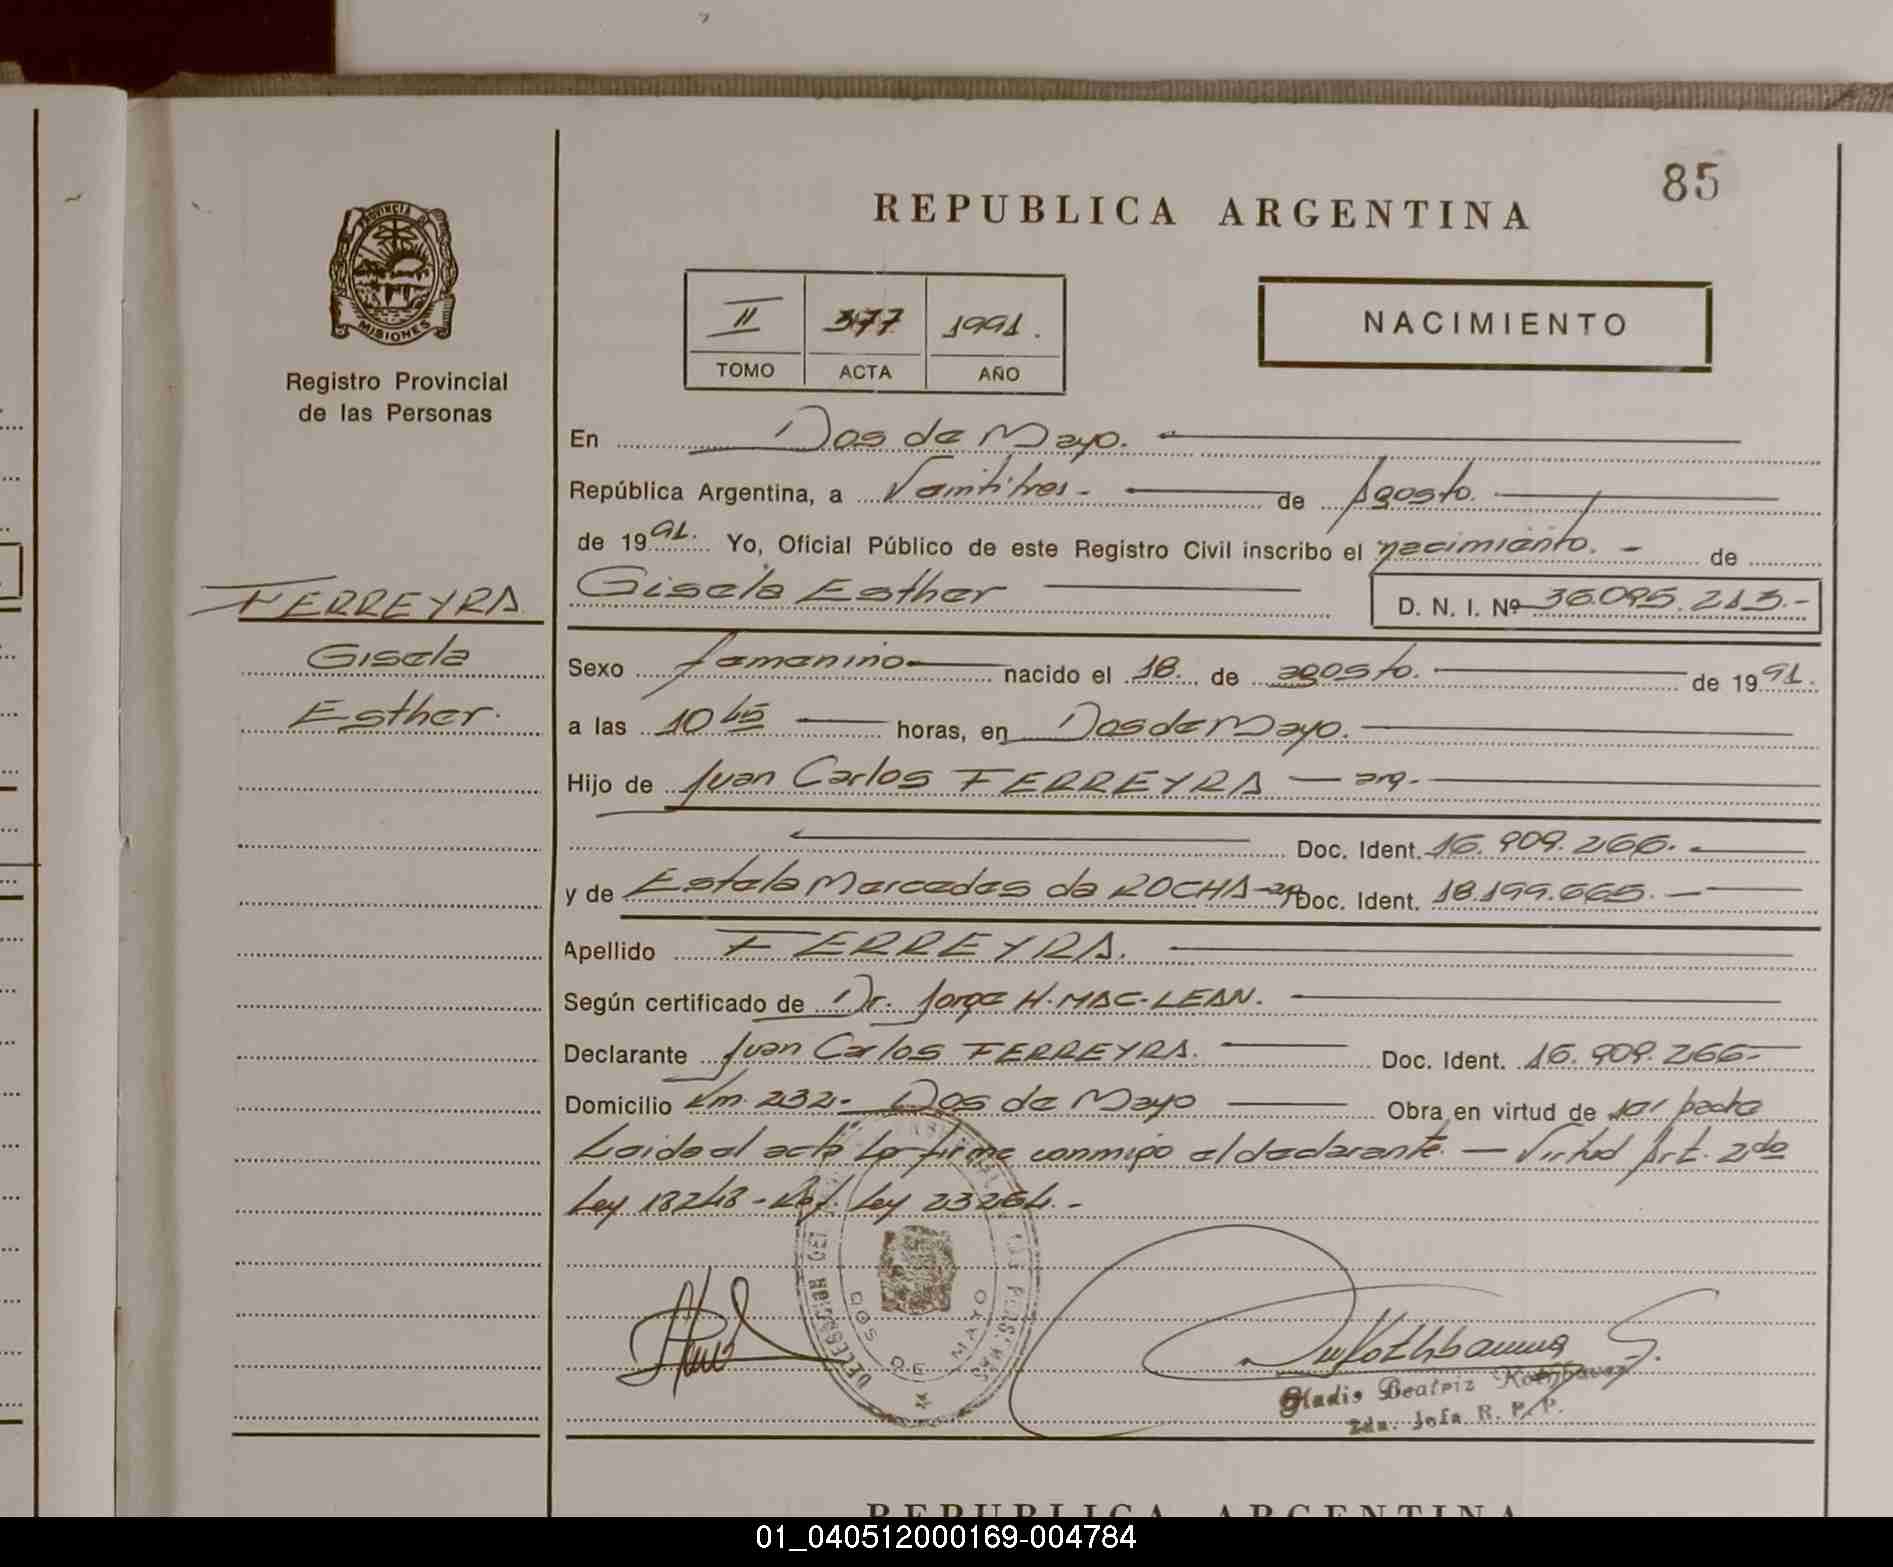 85
REPUBLICA ARGENTINA
PROVINCIA DE
MISIONES
Registro Provincial
de las Personas
II 377 1991.
TOMO ACTA AÑO
NACIMIENTO
En Dos de Mayo.
República Argentina, a Veintitres - de Agosto.
de 1991. Yo, Oficial Público de este Registro Civil inscribo el nacimiento. - de
Gisela Esther D. N. I. Nº 36.095.213.-
FERREYRA
Gisela
Esther.
Sexo femenino nacido el 18. de agosto. de 1991.
a las 10 45 horas, en Dos de Mayo.
Hijo de Juan Carlos FERREYRA — arg.
Doc. Ident. 16.909.266.
y de Estela Mercedes da ROCHA - Doc. Ident. 18.199.665. -
Apellido FERREYRA.
Según certificado de Dr. Jorge H. MAC-LEAN.
Declarante Juan Carlos FERREYRA. Doc. Ident. 16.909.266-
Domicilio Km. 232.- Dos de Mayo Obra en virtud de ser padre
Leida el acta La firma conmigo el declarante. — Virtud Art. 2do
Ley 18248 - Ref. Ley 23264. -
DOS DE MAYO
Gladis Beatriz
2da. Jefa R. P. P.
REPUBLICA ARGENTINA
01_040512000169-004784